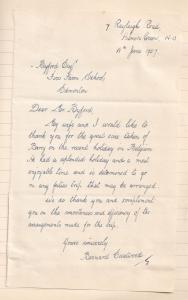 7 Rayleigh Road,
Palmers Green N.13
11th June 1957
- Ryford Esqr
Firs Farm School,
Edmonton
Dear Mr. Ryford,
My wife and I would like to
thank you for the great care taken of
Barry on the recent holiday in Belgium.
He had a splendid holiday and a most
enjoyable time and is determined to go
on any future trip that may be arranged.
We so thank you and compliment
you on the smoothness and efficiency of the
arrangements made for the trip.
Yours sincerely
Bernard